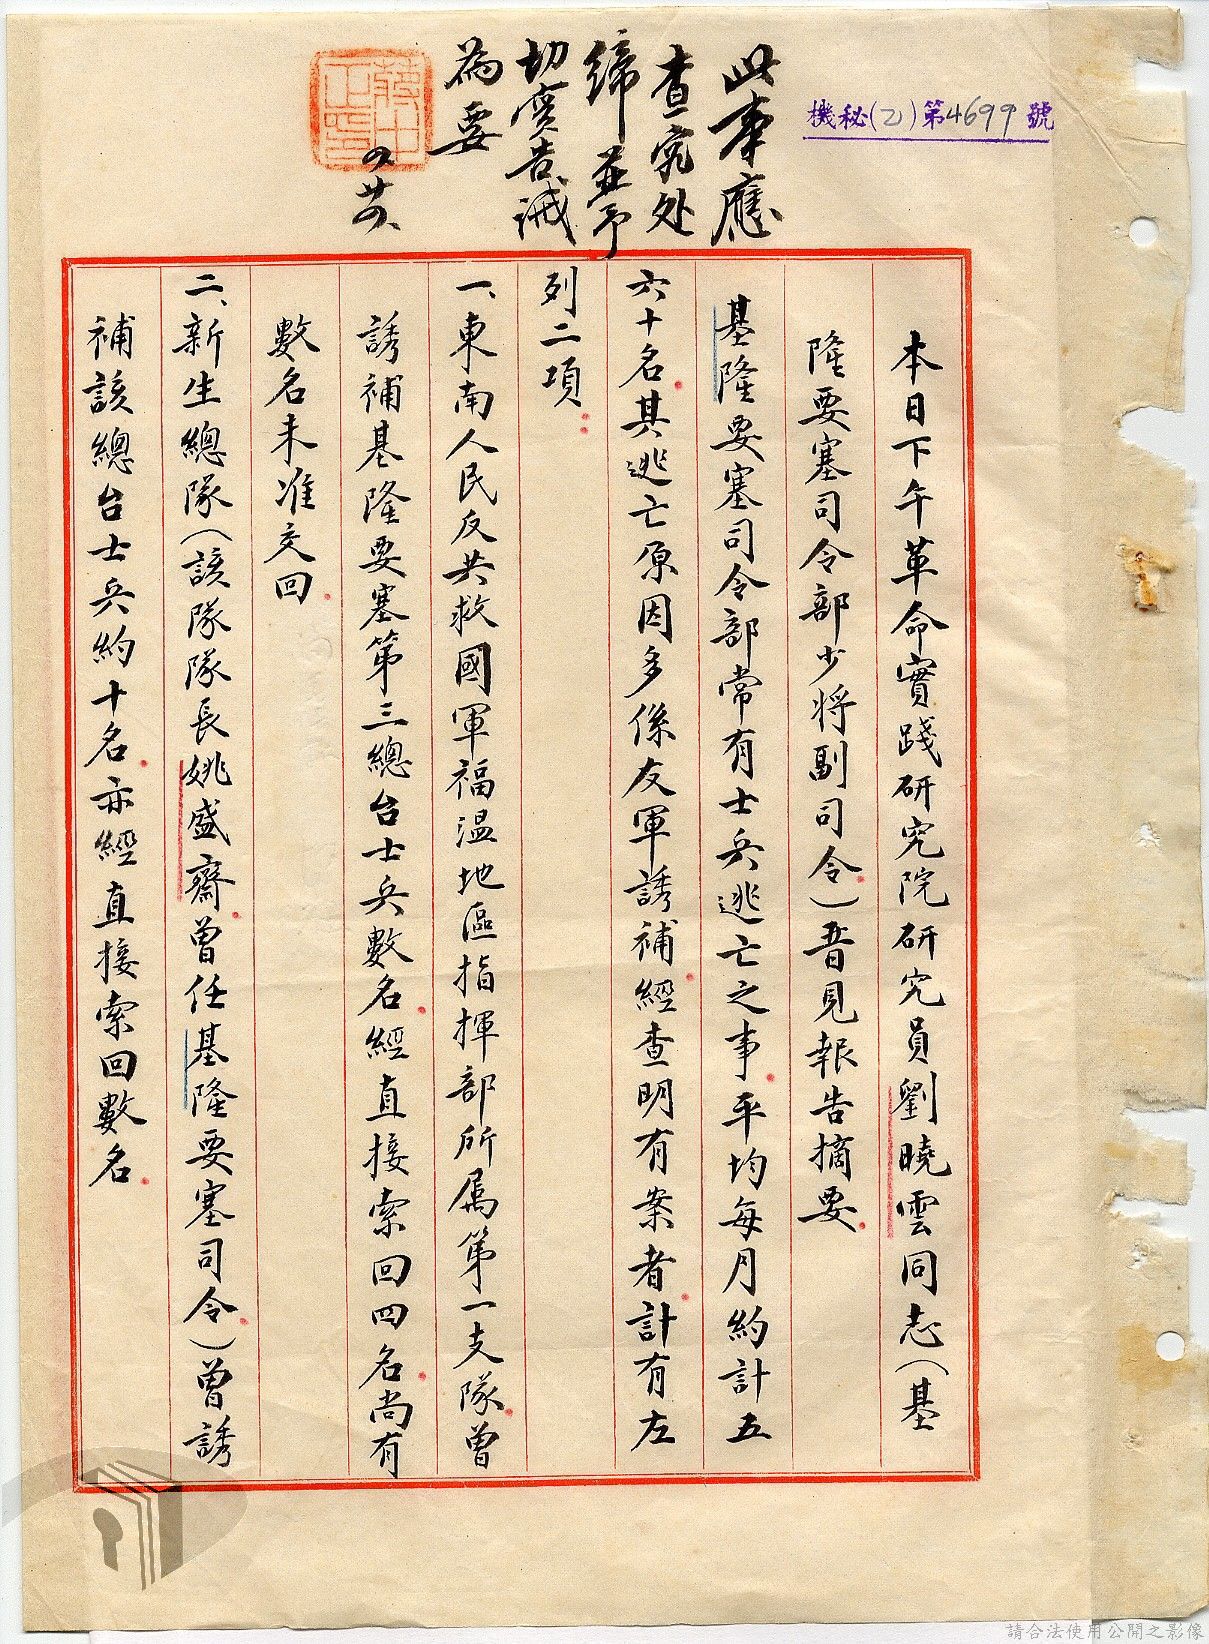 機秘(乙)第4699號
此事應
查究处
締並予
切實告誡
為要
蔣中正印
本日下午革命實踐研究院研究員劉曉雲同志(基
隆要塞司令部少將副司令)晉見報告摘要
基隆要塞司令部常有士兵逃亡之事平均每月約計五
六十名其逃亡原因多係友軍誘補經查明有案者計有左
列二項
一、東南人民反共救國軍福温地區指揮部所属第一支隊曾
誘補基隆要塞第三總台士兵數名經直接索回四名尚有
數名未准交回
二、新生總隊(該隊隊長姚盛齋曾任基隆要塞司令)曾誘
補該總台士兵約十名亦經直接索回數名
請合法使用公開之影像